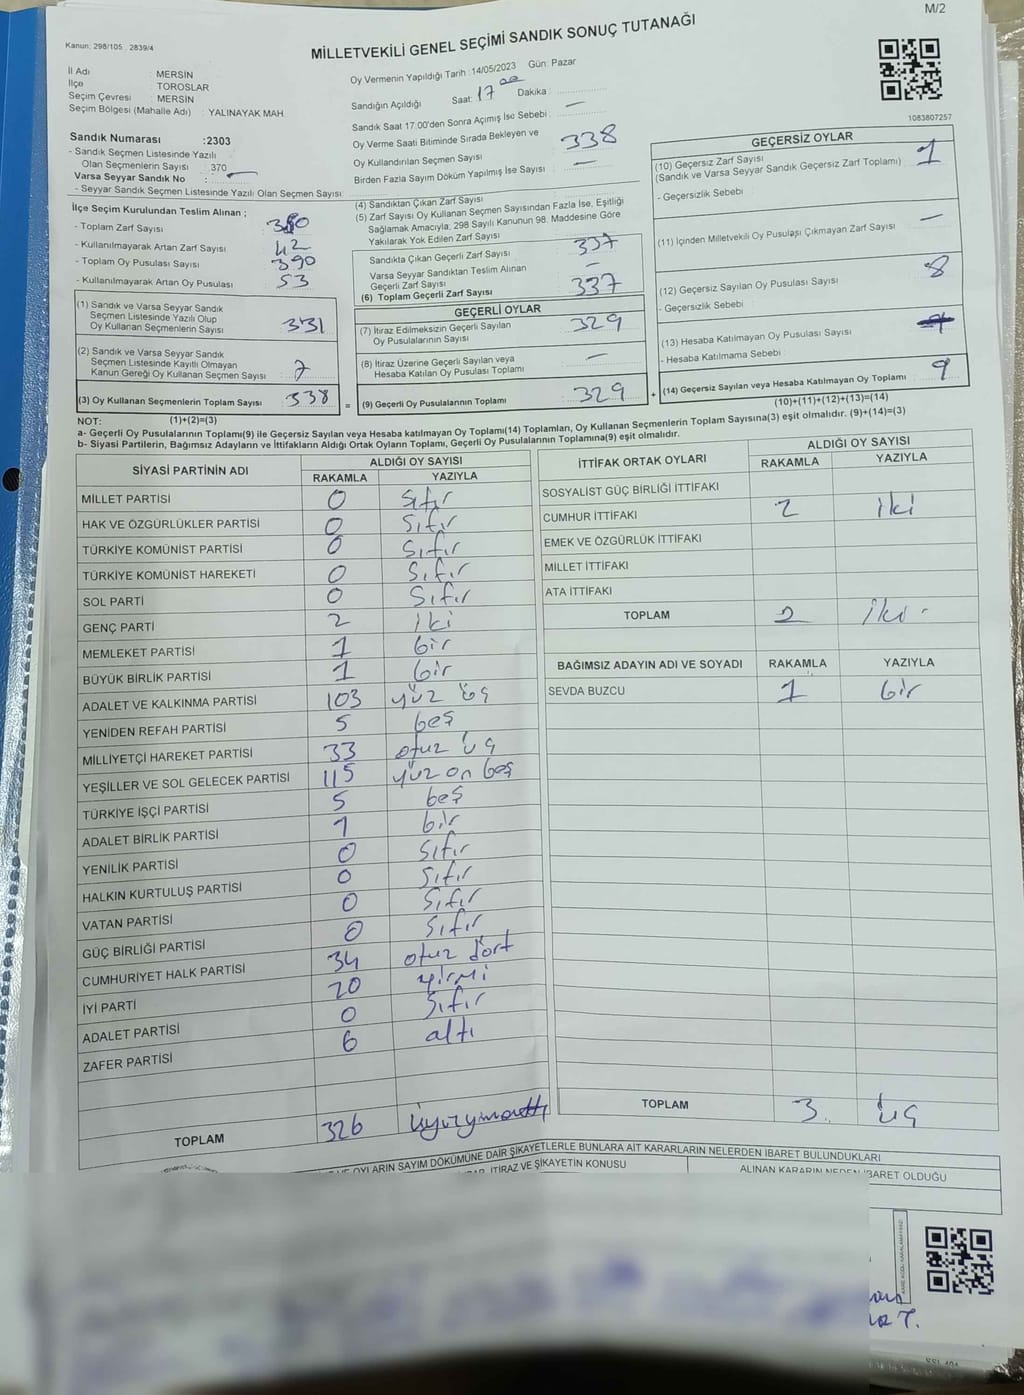 M/2
Kanun: 298/105 2839/4
MİLLETVEKİLİ GENEL SEÇİMİ SANDIK SONUÇ TUTANAĞI
İl Adı : MERSİN
İlçe : TOROSLAR
Seçim Çevresi : MERSİN
Seçim Bölgesi (Mahalle Adı) : YALINAYAK MAH
Oy Vermenin Yapıldığı Tarih :14/05/2023 Gün: Pazar
Sandığın Açıldığı Saat: 17 00 Dakika :
Sandık Saat 17:00'den Sonra Açımış İse Sebebi : —
Oy Verme Saati Bitiminde Sırada Bekleyen ve
Oy Kullandırılan Seçmen Sayısı : 338
Birden Fazla Sayım Döküm Yapılmış İse Sayısı : —
1083807257
Sandık Numarası :2303
- Sandık Seçmen Listesinde Yazılı
Olan Seçmenlerin Sayısı : 370
Varsa Seyyar Sandık No : —
- Seyyar Sandık Seçmen Listesinde Yazılı Olan Seçmen Sayısı:
İlçe Seçim Kurulundan Teslim Alınan ;
- Toplam Zarf Sayısı : 380
- Kullanılmayarak Artan Zarf Sayısı : 42
- Toplam Oy Pusulası Sayısı : 390
- Kullanılmayarak Artan Oy Pusulası : 53
(1) Sandık ve Varsa Seyyar Sandık
Seçmen Listesinde Yazılı Olup
Oy Kullanan Seçmenlerin Sayısı : 331
(2) Sandık ve Varsa Seyyar Sandık
Seçmen Listesinde Kayıtlı Olmayan
Kanun Gereği Oy Kullanan Seçmen Sayısı : 7
(3) Oy Kullanan Seçmenlerin Toplam Sayısı : 338
(1)+(2)=(3)
(4) Sandıktan Çıkan Zarf Sayısı
(5) Zarf Sayısı Oy Kullanan Seçmen Sayısından Fazla İse, Eşitliği
Sağlamak Amacıyla, 298 Sayılı Kanunun 98. Maddesine Göre
Yakılarak Yok Edilen Zarf Sayısı
Sandıkta Çıkan Geçerli Zarf Sayısı : 337
Varsa Seyyar Sandıktan Teslim Alınan
Geçerli Zarf Sayısı : —
(6) Toplam Geçerli Zarf Sayısı : 337
GEÇERLİ OYLAR
(7) İtiraz Edilmeksizin Geçerli Sayılan
Oy Pusulalarının Sayısı : 329
(8) İtiraz Üzerine Geçerli Sayılan veya
Hesaba Katılan Oy Pusulası Toplamı : —
= (9) Geçerli Oy Pusulalarının Toplamı : 329
GEÇERSİZ OYLAR
(10) Geçersiz Zarf Sayısı
(Sandık ve Varsa Seyyar Sandık Geçersiz Zarf Toplamı) : 1
- Geçersizlik Sebebi :
(11) İçinden Milletvekili Oy Pusulaşı Çıkmayan Zarf Sayısı : —
(12) Geçersiz Sayılan Oy Pusulası Sayısı : 8
- Geçersizlik Sebebi :
(13) Hesaba Katılmayan Oy Pusulası Sayısı :
- Hesaba Katılmama Sebebi :
+ (14) Geçersiz Sayılan veya Hesaba Katılmayan Oy Toplamı : 9
(10)+(11)+(12)+(13)=(14)
NOT:
a- Geçerli Oy Pusulalarının Toplamı(9) ile Geçersiz Sayılan veya Hesaba katılmayan Oy Toplamı(14) Toplamları, Oy Kullanan Seçmenlerin Toplam Sayısına(3) eşit olmalıdır. (9)+(14)=(3)
b- Siyasi Partilerin, Bağımsız Adayların ve İttifakların Aldığı Ortak Oyların Toplamı, Geçerli Oy Pusulalarının Toplamına(9) eşit olmalıdır.
SİYASİ PARTİNİN ADI ALDIĞI OY SAYISI
RAKAMLA YAZIYLA
MİLLET PARTİSİ 0 sıfır
HAK VE ÖZGÜRLÜKLER PARTİSİ 0 sıfır
TÜRKİYE KOMÜNİST PARTİSİ 0 sıfır
TÜRKİYE KOMÜNİST HAREKETİ 0 sıfır
SOL PARTİ 0 sıfır
GENÇ PARTİ 2 iki
MEMLEKET PARTİSİ 1 bir
BÜYÜK BİRLİK PARTİSİ 1 bir
ADALET VE KALKINMA PARTİSİ 103 yüz üç
YENİDEN REFAH PARTİSİ 5 beş
MİLLİYETÇİ HAREKET PARTİSİ 33 otuz üç
YEŞİLLER VE SOL GELECEK PARTİSİ 115 yüz on beş
TÜRKİYE İŞÇİ PARTİSİ 5 beş
ADALET BİRLİK PARTİSİ 1 bir
YENİLİK PARTİSİ 0 sıfır
HALKIN KURTULUŞ PARTİSİ 0 sıfır
VATAN PARTİSİ 0 sıfır
GÜÇ BİRLİĞİ PARTİSİ 0 sıfır
CUMHURİYET HALK PARTİSİ 34 otuz dört
İYİ PARTİ 20 yirmi
ADALET PARTİSİ 0 sıfır
ZAFER PARTİSİ 6 altı
TOPLAM 326 üçyüzyirmialtı
İTTİFAK ORTAK OYLARI ALDIĞI OY SAYISI
RAKAMLA YAZIYLA
SOSYALİST GÜÇ BİRLİĞİ İTTİFAKI
CUMHUR İTTİFAKI 2 iki
EMEK VE ÖZGÜRLÜK İTTİFAKI
MİLLET İTTİFAKI
ATA İTTİFAKI
TOPLAM 2 iki
BAĞIMSIZ ADAYIN ADI VE SOYADI RAKAMLA YAZIYLA
SEVDA BUZCU 1 bir
TOPLAM 3 üç
OYLARIN SAYIM DÖKÜMÜNE DAİR ŞİKAYETLERLE BUNLARA AİT KARARLARIN NELERDEN İBARET BULUNDUKLARI
İTİRAZ VE ŞİKAYETİN KONUSU ALINAN KARARIN NEDEN İBARET OLDUĞU